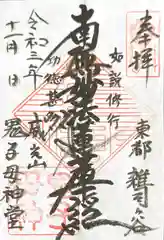 奉拝
東都 雑司ヶ谷
如説修行
南無妙法蓮華経
功徳甚多
威光山
鬼子母神堂
令和三年
十二月 日